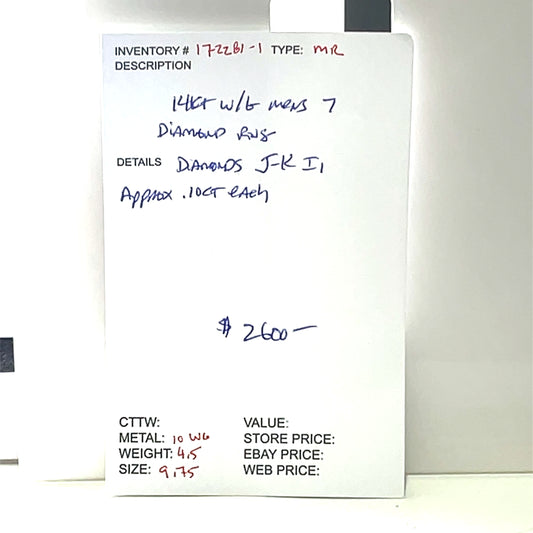 INVENTORY # 1722B1-1 TYPE: MR
DESCRIPTION
14KT W/G MENS 7
DIAMOND RNG
DETAILS DIAMONDS J-K I1
Approx .10CT EACH
$ 2600—
CTTW: VALUE:
METAL: 10 WG STORE PRICE:
WEIGHT: 4.5 EBAY PRICE:
SIZE: 9.75 WEB PRICE: